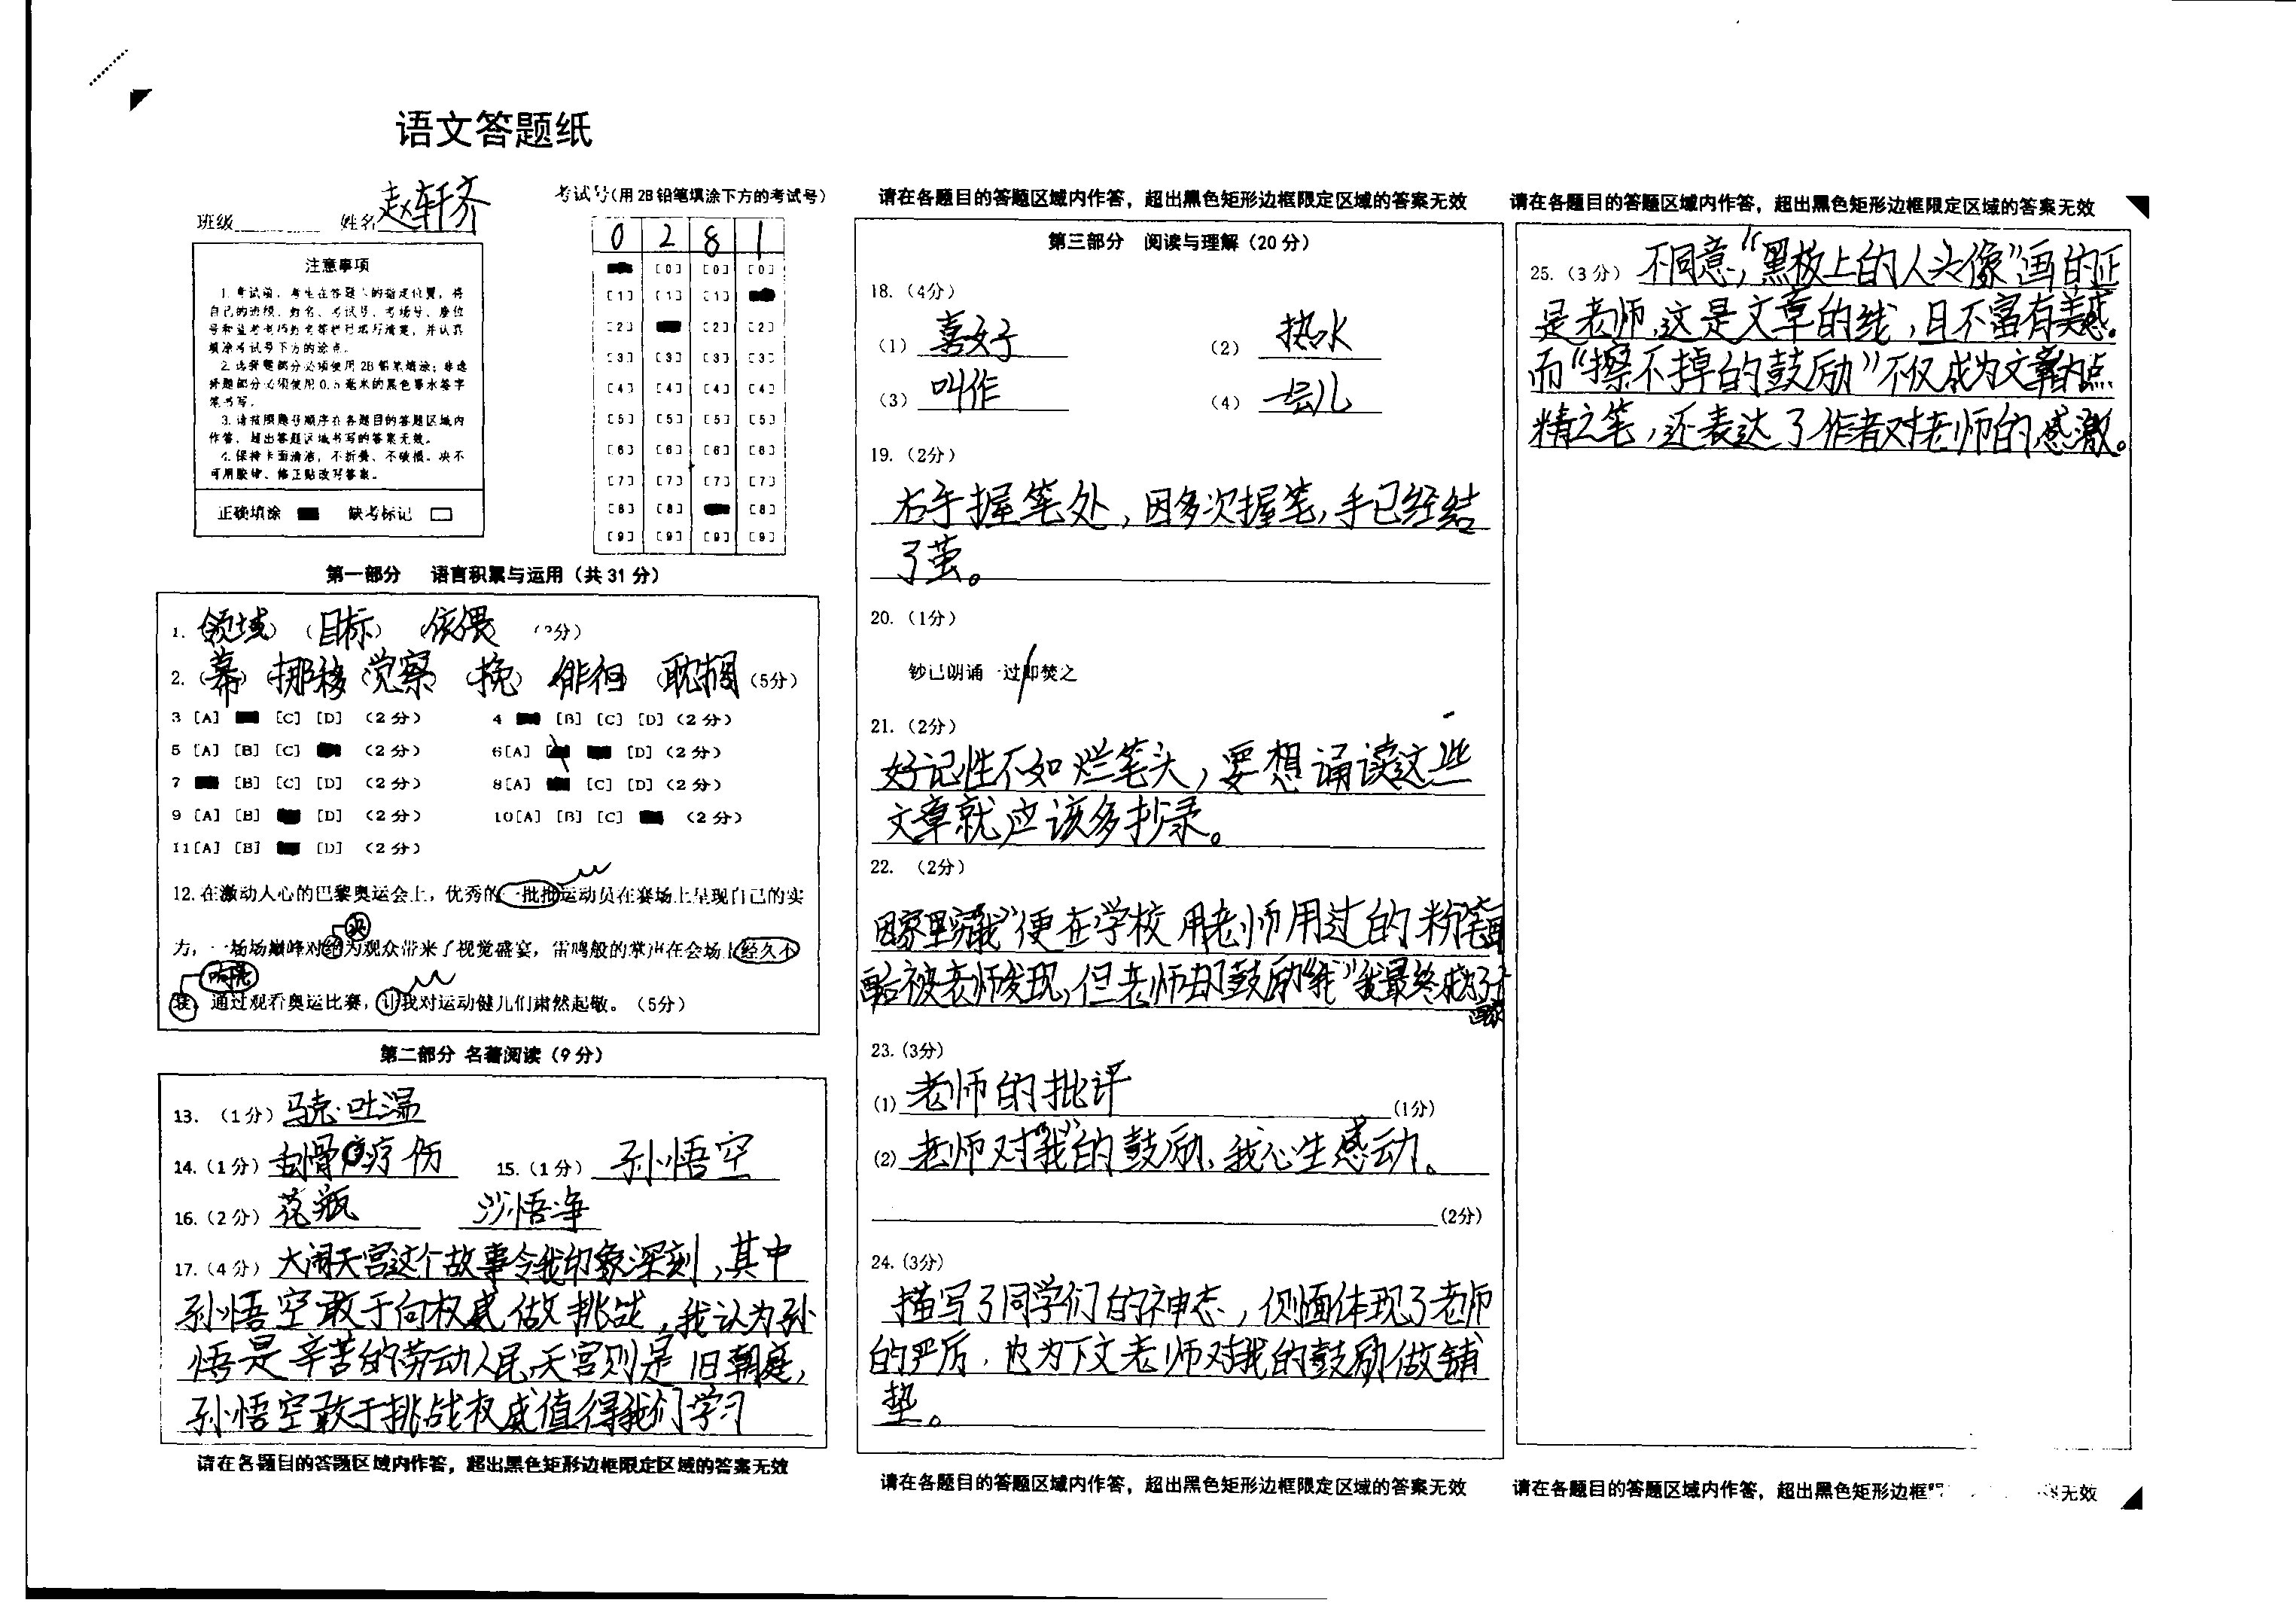 语文答题纸
班级 姓名 赵轩齐
考试号(用2B铅笔填涂下方的考试号)
0 2 8 1
[0] [0] [0]
[1] [1] [1]
[2] [2] [2]
[3] [3] [3] [3]
[4] [4] [4] [4]
[5] [5] [5] [5]
[6] [6] [6] [6]
[7] [7] [7] [7]
[8] [8] [8]
[9] [9] [9] [9]
注意事项
1.考试前,考生在答题卡的指定位置,将
自己的班级、姓名、考试号、考场号、座位
号和监考老师姓名等栏目填写清楚,并认真
填涂考试号下方的涂点。
2.选择题部分必须使用2B铅笔填涂;非选
择题部分必须使用0.5毫米的黑色墨水签字
笔书写。
3.请按照题号顺序在各题目的答题区域内
作答,超出答题区域书写的答案无效。
4.保持卡面清洁,不折叠、不破损。决不
可用胶带、修正贴改写答案。
正确填涂 缺考标记
第一部分 语言积累与运用(共31分)
1. (领域)(目标)(依偎)
2.(幕)(挪移)(觉察)(挽)(徘徊)(耽搁)(5分)
3 [A] [C] [D] (2分) 4 [B] [C] [D] (2分)
5 [A] [B] [C] (2分) 6 [A] [D] (2分)
7 [B] [C] [D] (2分) 8 [A] [C] [D] (2分)
9 [A] [B] [D] (2分) 10 [A] [B] [C] (2分)
11 [A] [B] [D] (2分)
12.在激动人心的巴黎奥运会上,优秀的一批批运动员在赛场上呈现自己的实
力,一场场巅峰对给为观众带来了视觉盛宴,雷鸣般的掌声在会场上经久不
决
响亮
衰。通过观看奥运比赛,让我对运动健儿们肃然起敬。(5分)
第二部分 名著阅读(9分)
13.(1分)马克·吐温
14.(1分)刮骨疗伤 15.(1分)孙悟空
16.(2分)花瓶 沙悟净
17.(4分)大闹天宫这个故事令我印象深刻,其中
孙悟空敢于向权威做挑战,我认为孙
悟是辛苦的劳动人民,天宫则是旧朝庭,
孙悟空敢于挑战权威值得我们学习
请在各题目的答题区域内作答,超出黑色矩形边框限定区域的答案无效
请在各题目的答题区域内作答,超出黑色矩形边框限定区域的答案无效
第三部分 阅读与理解(20分)
18.(4分)
(1)喜好 (2)热水
(3)叫作 (4)一会儿
19.(2分)
右手握笔处,因多次握笔,手已经结
了茧。
20.(1分)
钞已朗诵一过/即焚之
21.(2分)
好记性不如烂笔头,要想诵读这些
文章就应该多抄录。
22.(2分)
因家里穷“我”便在学校用老师用过的粉笔画
画后被老师发现,但老师却鼓励“我”我最终成为了大
画家
23.(3分)
(1)老师的批评 (1分)
(2)老师对“我”的鼓励,我心生感动。
(2分)
24.(3分)
描写了同学们的神态,侧面体现了老师
的严厉,也为下文老师对我的鼓励做铺
垫。
请在各题目的答题区域内作答,超出黑色矩形边框限定区域的答案无效
请在各题目的答题区域内作答,超出黑色矩形边框限定区域的答案无效
25.(3分)不同意,“黑板上的人头像”画的正
是老师,这是文章的线,且不富有美感。
而“擦不掉的鼓励”不仅成为文章的点
精之笔,还表达了作者对老师的感激。
请在各题目的答题区域内作答,超出黑色矩形边框 无效